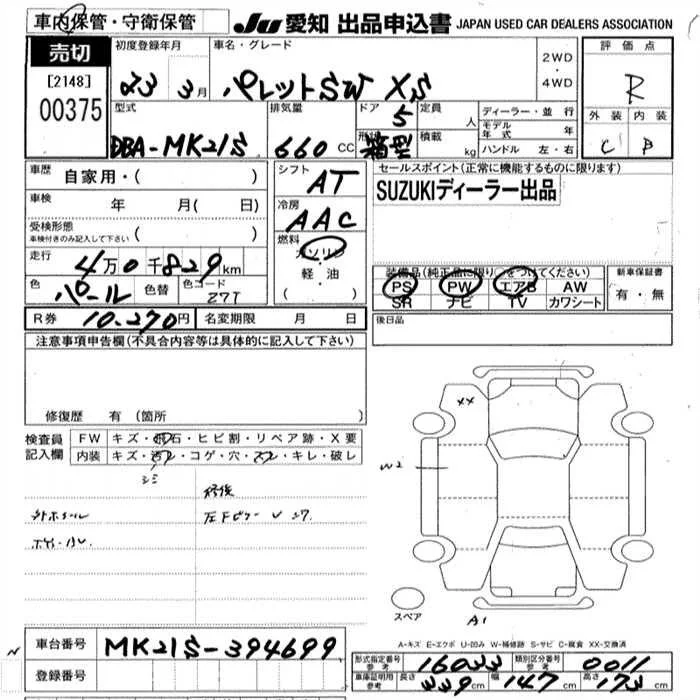 車内保管・守衛保管 JU 愛知 出品申込書 JAPAN USED CAR DEALERS ASSOCIATION
売切
[2148]
00375
初度登録年月 23 3月
車名・グレード パレットSW XS
2WD・4WD
評価点 R
外装 C 内装 B
型式 DBA-MK21S
排気量 660cc
ドア 5
形状 箱型
定員 人
積載 kg
ディーラー・並行
モデル年式 年
ハンドル 左・右
車歴 自家用・( )
車検 年 月( 日)
受検形態 車検付きのみ記入して下さい ( )
走行 4万0千829km
色 パール 色替 色コード Z7T
シフト AT
冷房 AAC
燃料 ガソリン・軽油 ( )
セールスポイント(正常に機能するものに限ります)
SUZUKIディーラー出品
装備品(純正品に限り○をつけてください)
PS PW エアB AW
SR ナビ TV カワシート
新車保証書 有・無
R券 10,270円 名変期限 月 日
後日品
注意事項申告欄(不具合内容等は具体的に記入して下さい)
修復歴 有 (箇所 )
検査員記入欄
FW キズ・飛石・ヒビ割・リペア跡・X要
内装 キズ・汚レ・コゲ・穴・スレ・キレ・破レ
シミ
修後
左下ピラー
XX
W2
A1
スペア
A-キズ E-エクボ U-凹み W-補修跡 S-サビ C-腐食 XX-交換済
車台番号 MK21S-394699
登録番号
形式指定番号 参考 16033 類別区分番号 参考 0011
車庫証明用 参考 長さ 339cm 幅 147cm 高さ 173cm
N